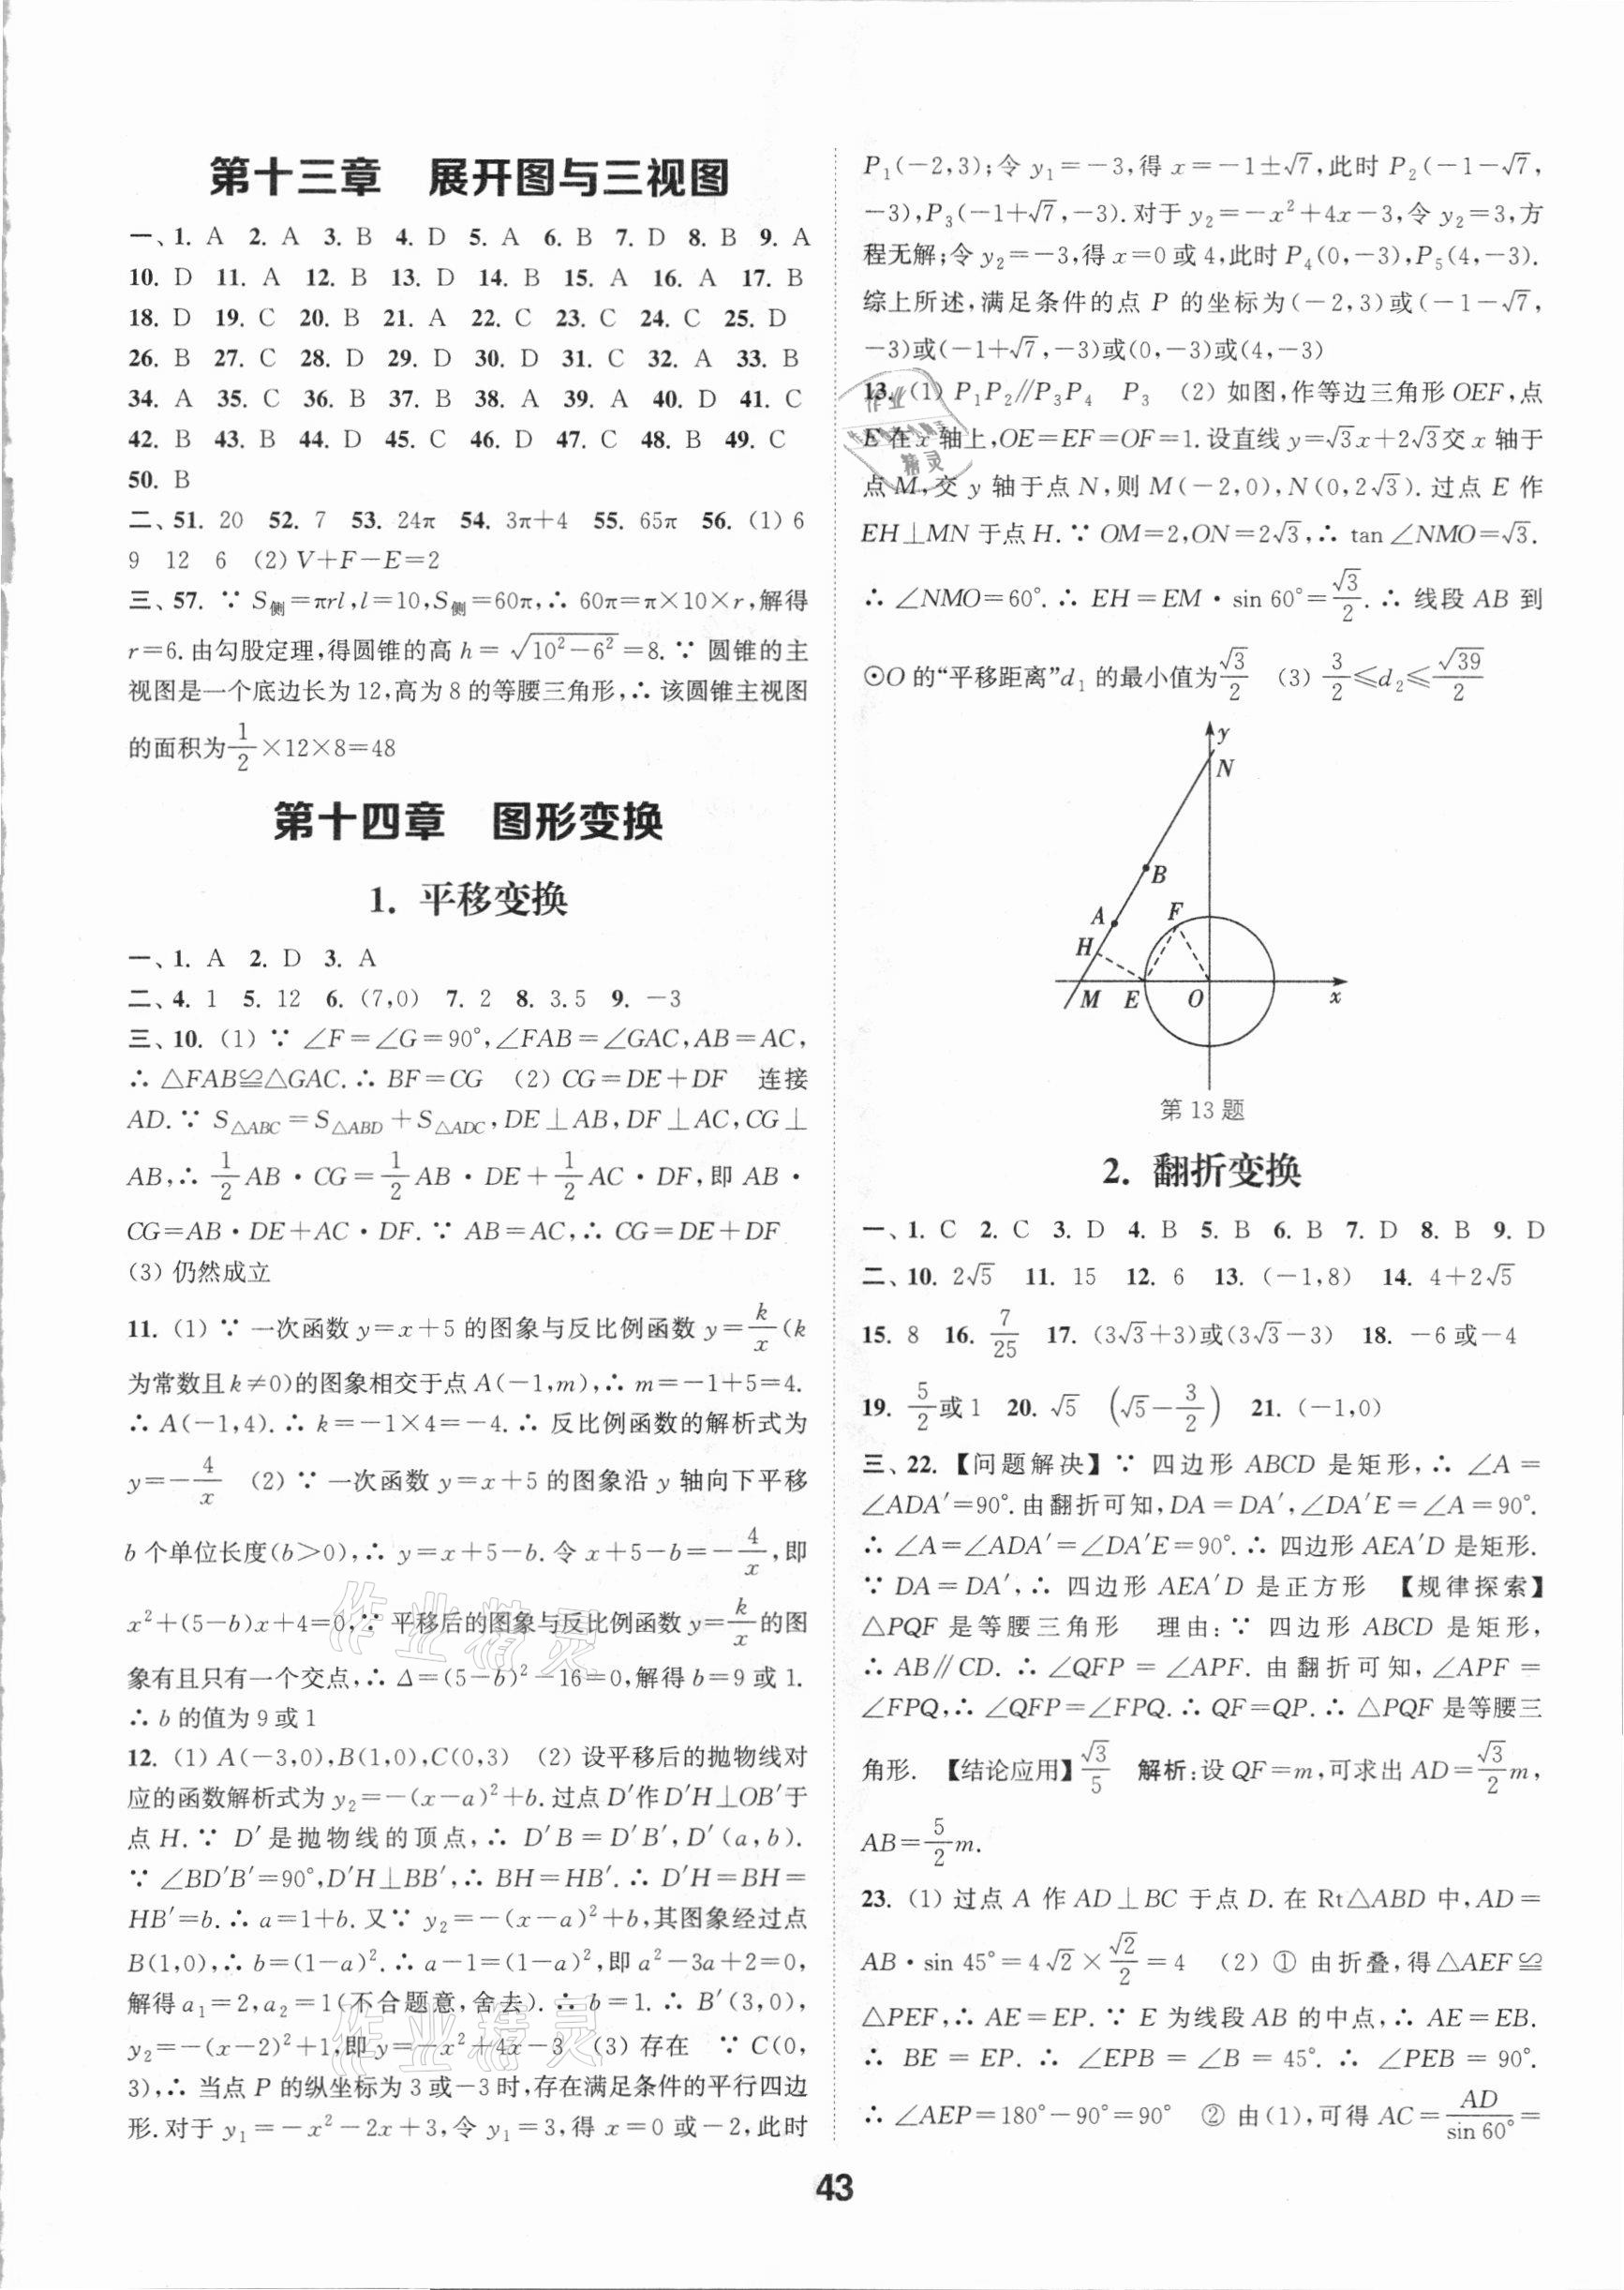 第十三章　展开图与三视图
一、1. A 2. A 3. B 4. D 5. A 6. B 7. D 8. B 9. A
10. D 11. A 12. B 13. D 14. B 15. A 16. A 17. B
18. D 19. C 20. B 21. A 22. C 23. C 24. C 25. D
26. B 27. C 28. D 29. D 30. D 31. C 32. A 33. B
34. A 35. C 36. B 37. B 38. A 39. A 40. D 41. C
42. B 43. B 44. D 45. C 46. D 47. C 48. B 49. C
50. B
二、51. 20 52. 7 53. 24π 54. 3π+4 55. 65π 56. (1) 6
9 12 6 (2) V+F−E=2
三、57. ∵ S侧=πrl,l=10,S侧=60π,∴ 60π=π×10×r,解得
r=6.由勾股定理,得圆锥的高 h=√(10²−6²)=8.∵ 圆锥的主
视图是一个底边长为12,高为8的等腰三角形,∴ 该圆锥主视图
的面积为1/2×12×8=48
第十四章　图形变换
1. 平移变换
一、1. A 2. D 3. A
二、4. 1 5. 12 6. (7,0) 7. 2 8. 3.5 9. −3
三、10. (1) ∵ ∠F=∠G=90°,∠FAB=∠GAC,AB=AC,
∴ △FAB≌△GAC.∴ BF=CG (2) CG=DE+DF 连接
AD.∵ S△ABC=S△ABD+S△ADC,DE⊥AB,DF⊥AC,CG⊥
AB,∴ 1/2AB·CG=1/2AB·DE+1/2AC·DF,即 AB·
CG=AB·DE+AC·DF.∵ AB=AC,∴ CG=DE+DF
(3) 仍然成立
11. (1) ∵ 一次函数 y=x+5 的图象与反比例函数 y=k/x(k
为常数且k≠0)的图象相交于点A(−1,m),∴ m=−1+5=4.
∴ A(−1,4).∴ k=−1×4=−4.∴ 反比例函数的解析式为
y=−4/x (2) ∵ 一次函数 y=x+5 的图象沿 y 轴向下平移
b 个单位长度(b>0),∴ y=x+5−b.令 x+5−b=−4/x,即
x²+(5−b)x+4=0,∵ 平移后的图象与反比例函数 y=k/x的图
象有且只有一个交点,∴ Δ=(5−b)²−16=0,解得b=9 或 1.
∴ b 的值为 9 或 1
12. (1) A(−3,0),B(1,0),C(0,3) (2) 设平移后的抛物线对
应的函数解析式为 y₂=−(x−a)²+b.过点D′作D′H⊥OB′于
点 H.∵ D′是抛物线的顶点,∴ D′B=D′B′,D′(a,b).
∵ ∠BD′B′=90°,D′H⊥BB′,∴ BH=HB′.∴ D′H=BH=
HB′=b.∴ a=1+b.又∵ y₂=−(x−a)²+b,其图象经过点
B(1,0),∴ b=(1−a)².∴ a−1=(1−a)²,即a²−3a+2=0,
解得a₁=2,a₂=1(不合题意,舍去).∴ b=1.∴ B′(3,0),
y₂=−(x−2)²+1,即 y=−x²+4x−3 (3) 存在 ∵ C(0,
3),∴ 当点 P 的纵坐标为 3 或−3时,存在满足条件的平行四边
形.对于 y₁=−x²−2x+3,令 y₁=3,得 x=0 或−2,此时
P₁(−2,3);令 y₁=−3,得 x=−1±√7,此时 P₂(−1−√7,
−3),P₃(−1+√7,−3).对于 y₂=−x²+4x−3,令 y₂=3,方
程无解;令 y₂=−3,得 x=0 或 4,此时 P₄(0,−3),P₅(4,−3).
综上所述,满足条件的点 P 的坐标为(−2,3)或(−1−√7,
−3)或(−1+√7,−3)或(0,−3)或(4,−3)
13. (1) P₁P₂∥P₃P₄ P₃ (2) 如图,作等边三角形OEF,点
E 在 x 轴上,OE=EF=OF=1.设直线 y=√3x+2√3交 x 轴于
点 M,交 y 轴于点 N,则 M(−2,0),N(0,2√3).过点 E 作
EH⊥MN 于点 H.∵ OM=2,ON=2√3,∴ tan ∠NMO=√3.
∴ ∠NMO=60°.∴ EH=EM·sin 60°=√3/2.∴ 线段 AB 到
⊙O 的“平移距离”d₁ 的最小值为√3/2 (3) 3/2≤d₂≤√39/2
y
N
B
A
F
H
M E O x
第 13 题
2. 翻折变换
一、1. C 2. C 3. D 4. B 5. B 6. B 7. D 8. B 9. D
二、10. 2√5 11. 15 12. 6 13. (−1,8) 14. 4+2√5
15. 8 16. 7/25 17. (3√3+3)或(3√3−3) 18. −6 或−4
19. 5/2或1 20. √5 (√5−3/2) 21. (−1,0)
三、22.【问题解决】∵ 四边形 ABCD 是矩形,∴ ∠A=
∠ADA′=90°.由翻折可知,DA=DA′,∠DA′E=∠A=90°.
∴ ∠A=∠ADA′=∠DA′E=90°.∴ 四边形 AEA′D 是矩形.
∵ DA=DA′,∴ 四边形 AEA′D 是正方形 【规律探索】
△PQF 是等腰三角形 理由:∵ 四边形 ABCD 是矩形,
∴ AB∥CD.∴ ∠QFP=∠APF.由翻折可知,∠APF=
∠FPQ,∴ ∠QFP=∠FPQ.∴ QF=QP.∴ △PQF 是等腰三
角形. 【结论应用】√3/5 解析:设 QF=m,可求出 AD=√3/2m,
AB=5/2m.
23. (1) 过点 A 作 AD⊥BC 于点 D.在 Rt△ABD 中,AD=
AB·sin 45°=4√2×√2/2=4 (2) ① 由折叠,得△AEF≌
△PEF,∴ AE=EP.∵ E 为线段 AB 的中点,∴ AE=EB.
∴ BE=EP.∴ ∠EPB=∠B=45°.∴ ∠PEB=90°.
∴ ∠AEP=180°−90°=90° ② 由(1),可得 AC=AD/sin 60°=
43
作业精灵
作业精灵
作业
精灵